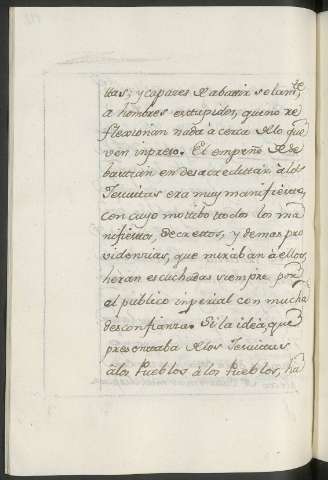 itas; y capaces de abatir solam.te
a hombres estupidos, que no re
flexionan nada acerca de lo que
ven inpreso. El empeño de Se
bastian en desacreditar à los
Jesuitas era muy manifiesto,
con cuyo motibo todos los ma
nifiestos, Decretos, y demas pro
videnzias, que miraban à ellos,
heran escuchadas siempre por
el publico inperial con mucha
desconfianza. Si la idéa, que
presentaba de los Jesuitas
à los Pueblos à los Pueblos, hu